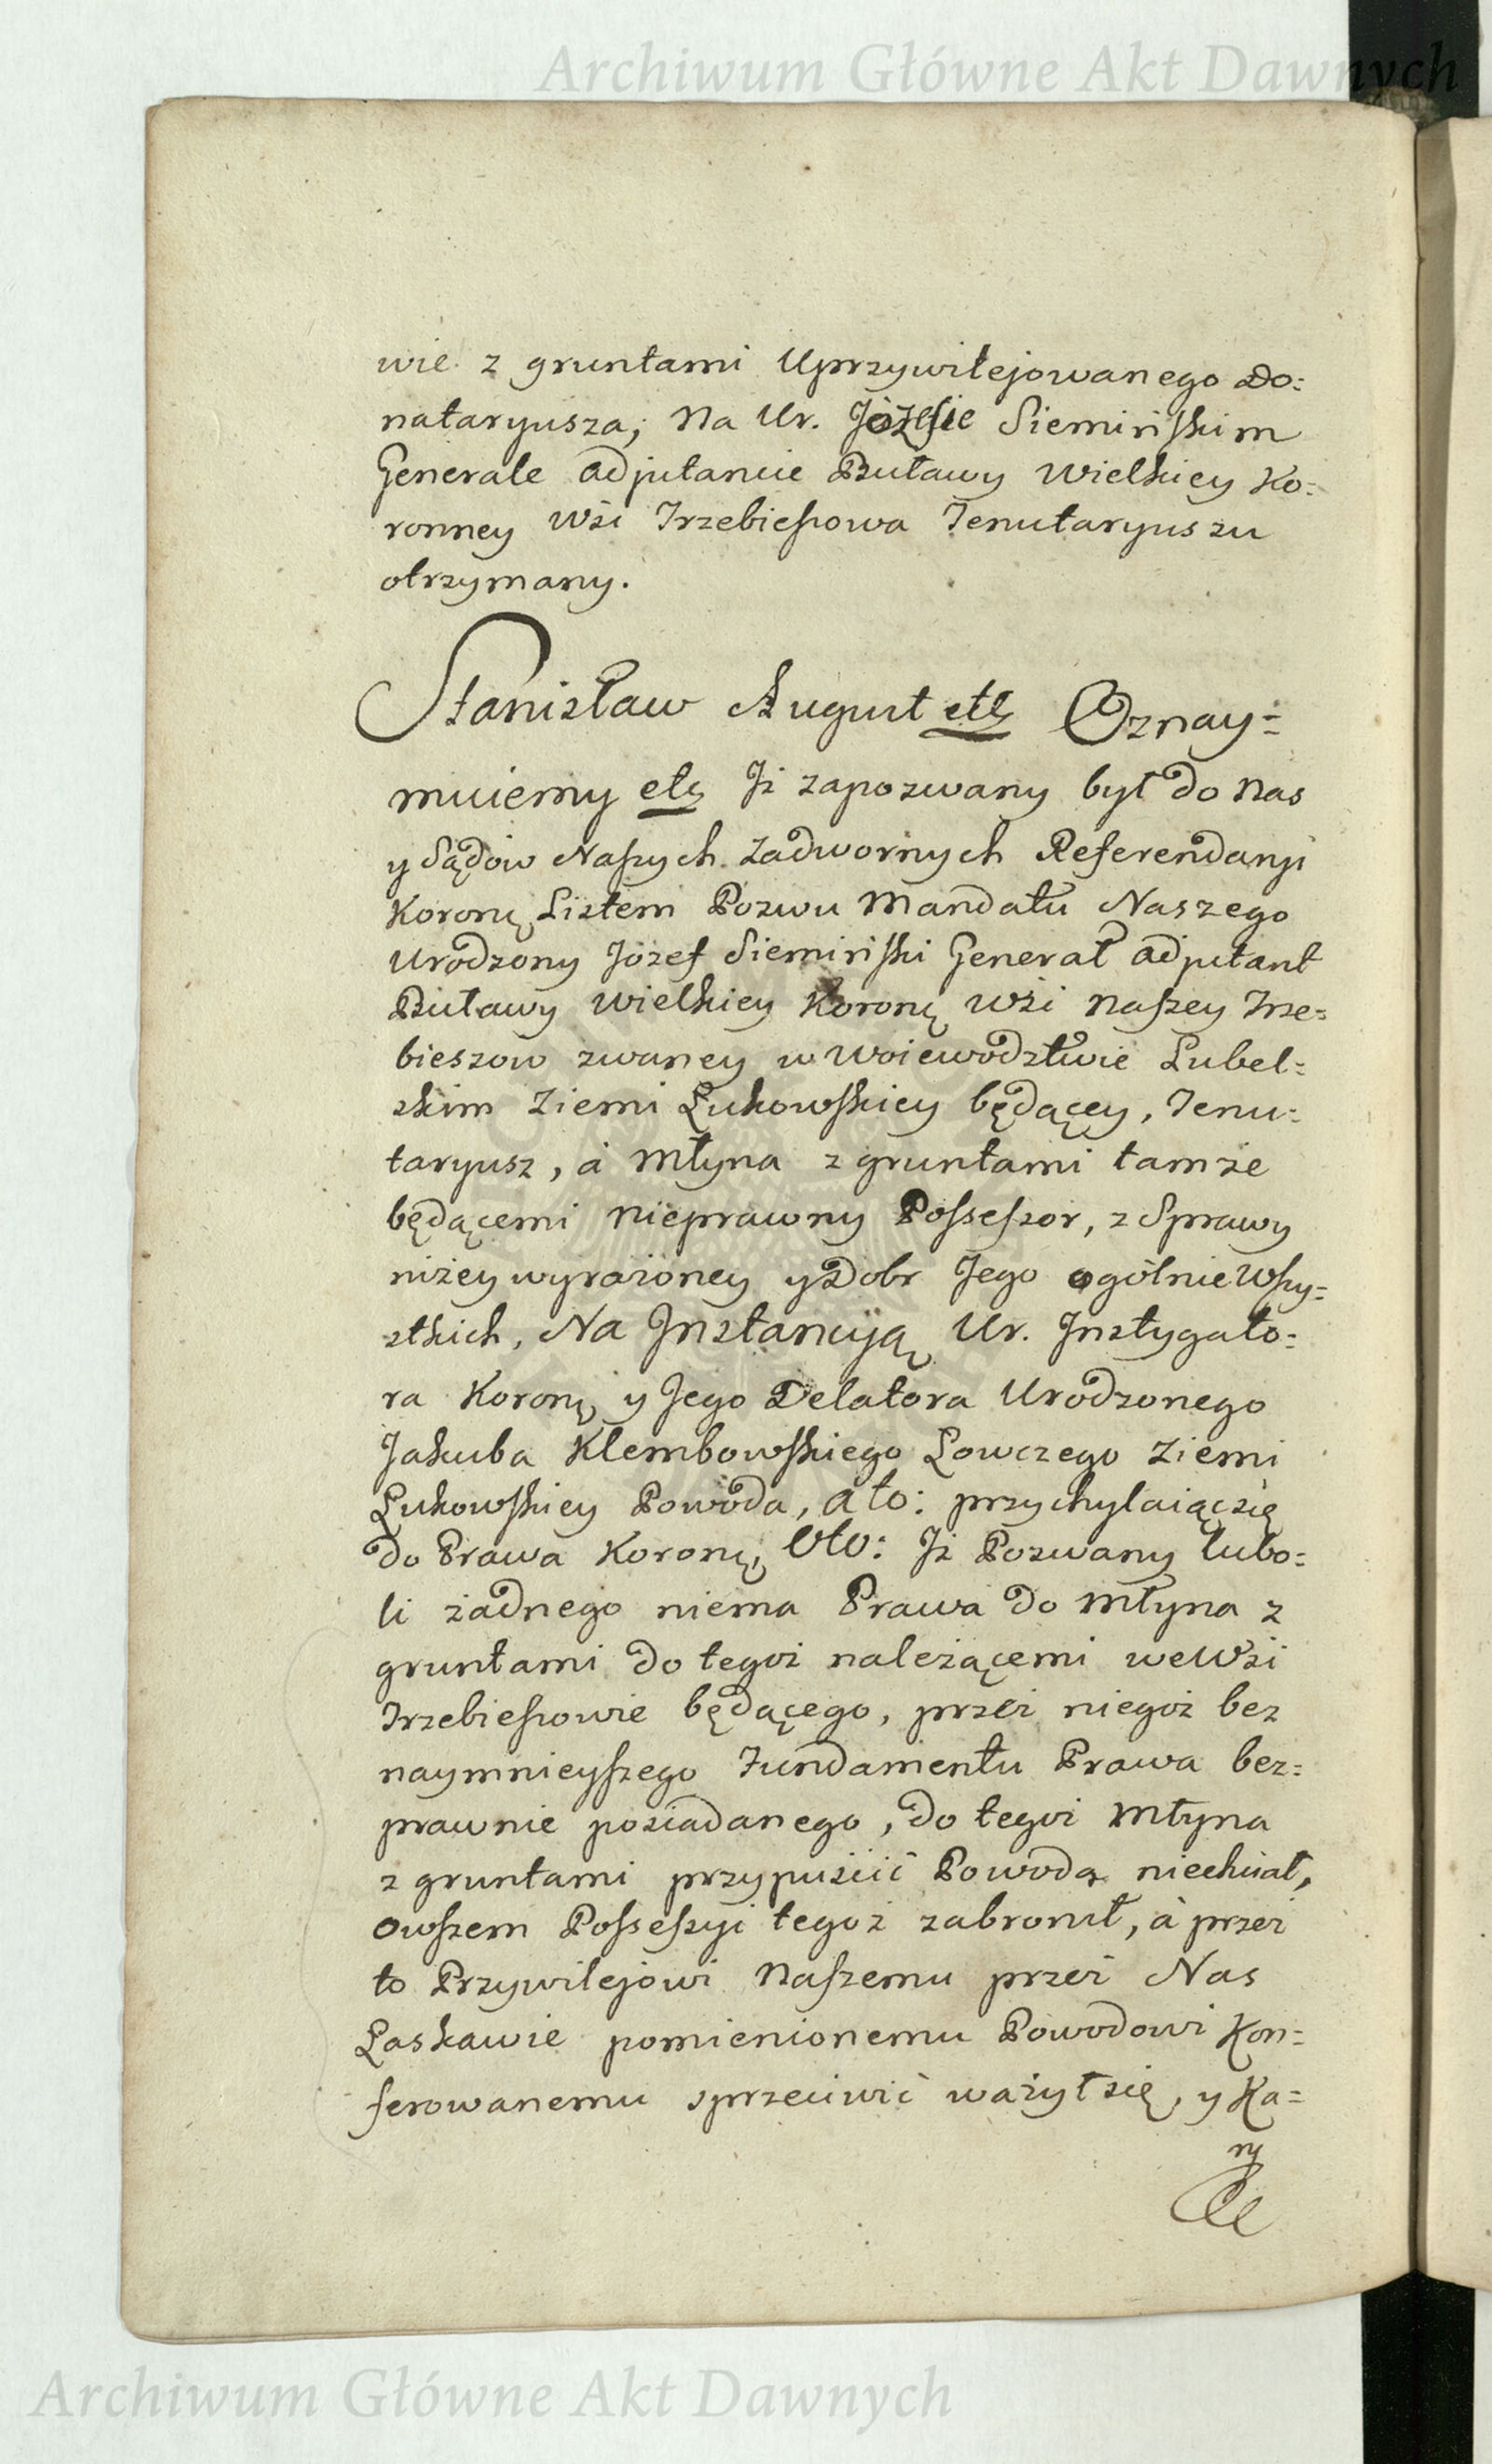 Archiwum Główne Akt Dawnych
wie z gruntami Uprzywilejowanego Do=
nataryusza, Na Ur. Józefie Siemińskim
Generale Adjutancie Buławy Wielkiey Ko=
ronney Wsi Trzebieszowa Tenutaryuszu
otrzymany.
Stanisław August etc Oznay=
muiemy etc Iż zapozwany był do Nas
y Sądow Naszych Zadwornych Referendaryi
Koronney Listem Pozwu Mandatu Naszego
Urodzony Jozef Siemiński Generał Adjutant
Buławy Wielkiey Koronney Wsi Naszey Trze=
bieszow zwaney w Woiewodztwie Lubel=
skim Ziemi Łukowskiey będącey, Tenu=
taryusz, á Młyna z gruntami tamże
będącemi nieprawny Possessor, z Sprawy
niżey wyrażoney y Dobr Jego ogólnie Wszy=
stkich, Na Instancyją Ur. Instygato=
ra Koronnego y Jego Delatora Urodzonego
Jakuba Klembowskiego Łowczego Ziemi
Łukowskiey Powoda, Ato: przychylaiąc się
do Prawa Koronnego, Oto: Iż Pozwany lubo=
li żadnego niema Prawa do Młyna z
gruntami do tegoż należącemi we Wsi
Trzebieszowie będącego, przez niegoż bez
naymnieyszego Fundamentu Prawa bez=
prawnie posiadanego, do tegoż Młyna
z gruntami przypuścić Powoda niechciał,
Owszem Possessyi tegoż zabronił, á przez
to Przywilejowi Naszemu przez Nas
Łaskawie pomienionemu Powodowi Kon=
ferowanemu sprzeciwić ważył się, y Ka=
ry
Archiwum Główne Akt Dawnych